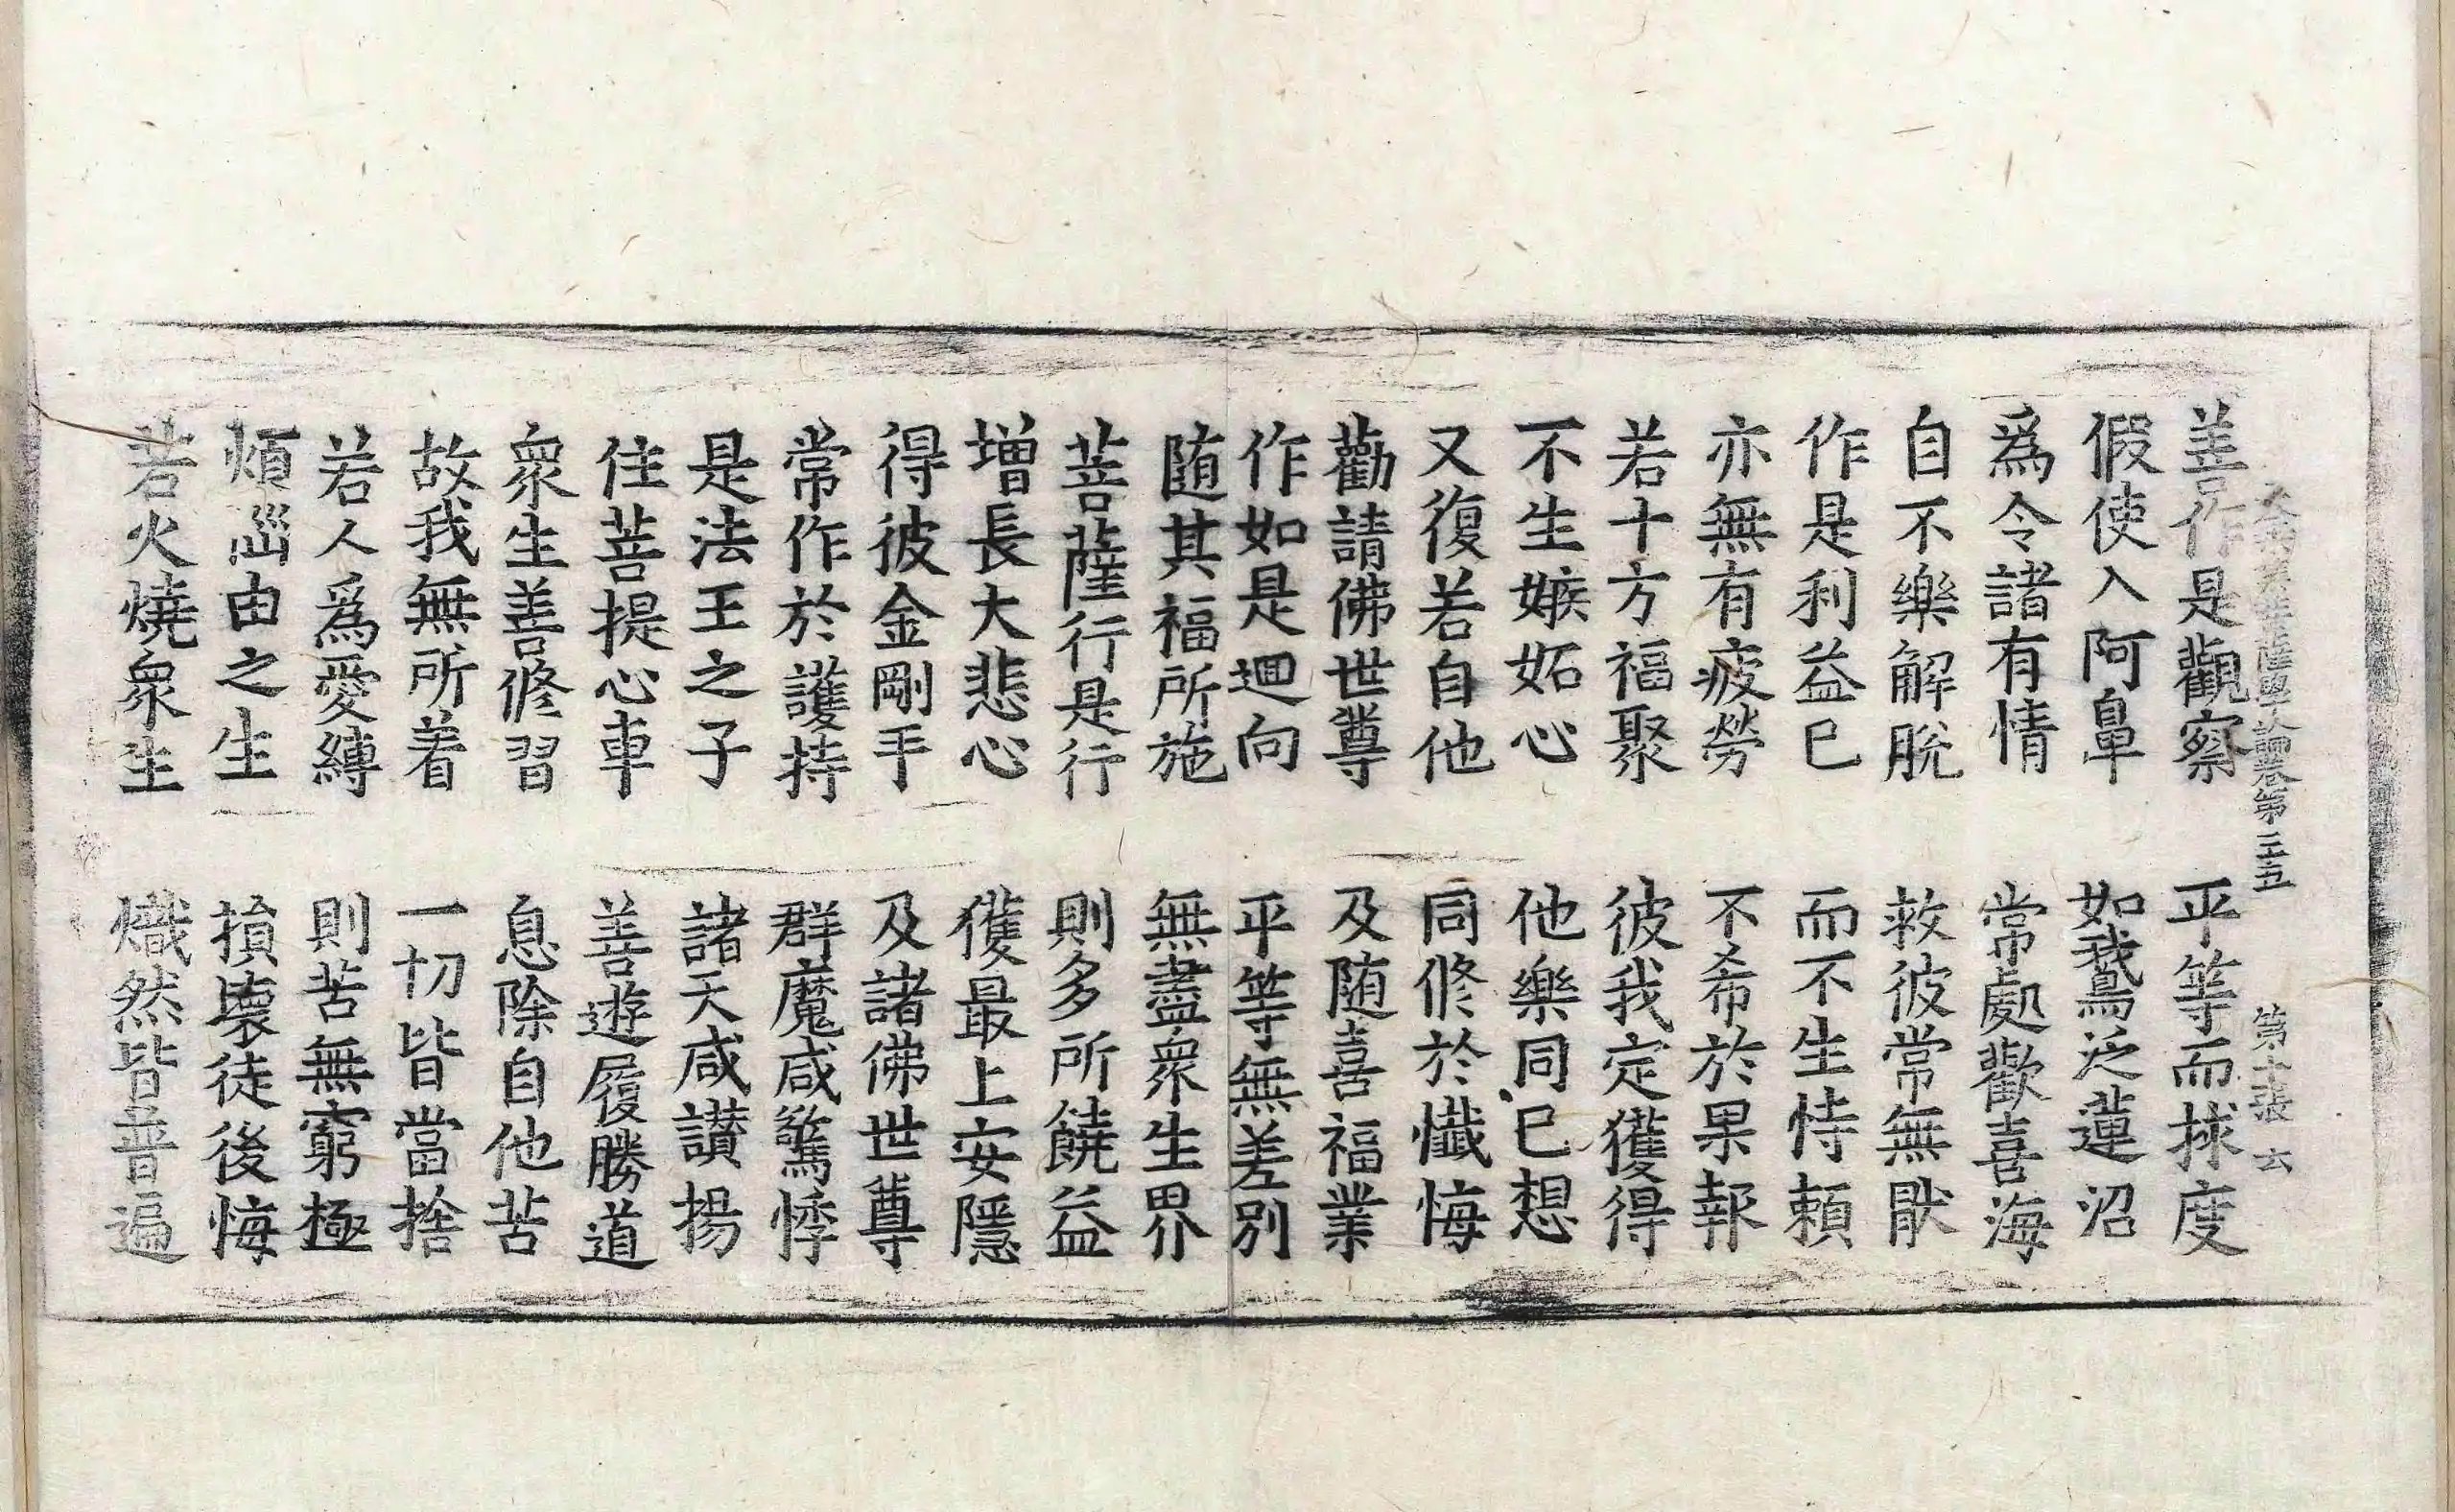 大乘集菩薩學論卷第二五 第十張 云
善作是觀察 平等而捄度
假使入阿鼻 如鵝泛蓮沼
爲令諸有情 常處歡喜海
自不樂解脫 救彼常無猒
作是利益已 而不生恃賴
亦無有疲勞 不希於果報
若十方福聚 彼我定獲得
不生嫉妬心 他樂同已想
又復若自他 同修於懺悔
勸請佛世尊 及随喜福業
作如是迴向 平等無差別
随其福所施 無盡衆生界
菩薩行是行 則多所饒益
增長大悲心 獲最上安隱
得彼金剛手 及諸佛世尊
常作於護持 群魔咸驚悸
是法王之子 諸天咸讃揚
住菩提心車 善遊履勝道
衆生善修習 息除自他苦
故我無所着 一切皆當捨
若人爲愛縛 則苦無窮極
煩惱由之生 損壞徒後悔
若火燒衆生 熾然皆普遍